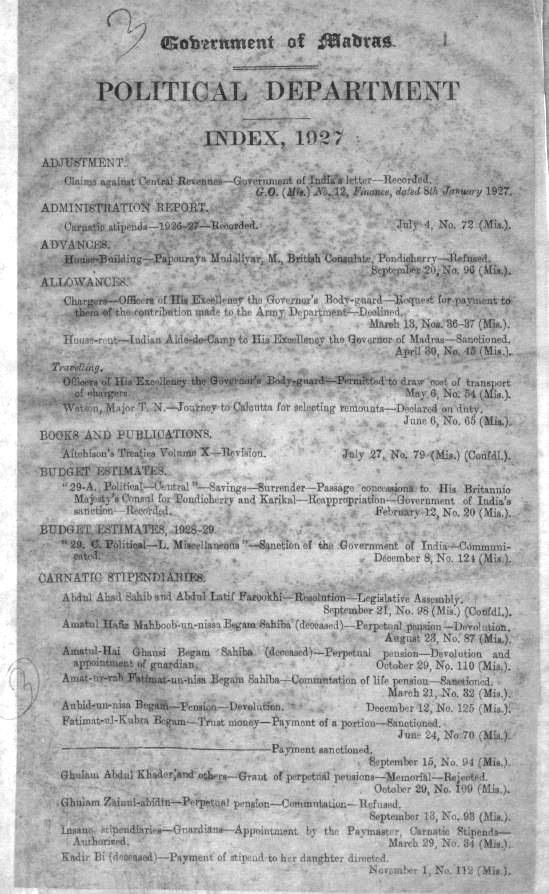 3
Government of Madras.
POLITICAL DEPARTMENT
INDEX, 1927
ADJUSTMENT.
Claims against Central Revenues—Government of India's letter—Recorded.
G.O. (Mis.) No. 12, Finance, dated 8th January 1927.
ADMINISTRATION REPORT.
Carnatic stipends—1926-27—Recorded. July 4, No. 72 (Mis.).
ADVANCES.
House-Building—Papouraya Mudaliyar, M., British Consulate, Pondicherry—Refused.
September 20, No. 96 (Mis.).
ALLOWANCES.
Chargers—Officers of His Excellency the Governor's Body-guard—Request for payment to
them of the contribution made to the Army Department—Declined.
March 13, Nos. 36-37 (Mis.).
House-rent—Indian Aide-de-Camp to His Excellency the Governor of Madras—Sanctioned.
April 30, No. 45 (Mis.).
Travelling.
Officers of His Excellency the Governor's Body-guard—Permitted to draw cost of transport
of chargers. May 6, No. 54 (Mis.).
Watson, Major T. N.—Journey to Calcutta for selecting remounts—Declared on duty.
June 6, No. 65 (Mis.).
BOOKS AND PUBLICATIONS.
Aitchison's Treaties Volume X—Revision. July 27, No. 79 (Mis.) (Confdl.).
BUDGET ESTIMATES.
"29-A. Political—Central"—Savings—Surrender—Passage concessions to His Britannic
Majesty's Consul for Pondicherry and Karikal—Reappropriation—Government of India's
sanction—Recorded. February 12, No. 20 (Mis.).
BUDGET ESTIMATES, 1928-29.
"29. C. Political—L. Miscellaneous"—Sanction of the Government of India—Communi-
cated. December 8, No. 124 (Mis.).
CARNATIC STIPENDIARIES.
Abdul Ahad Sahib and Abdul Latif Farookhi—Resolution—Legislative Assembly.
September 21, No. 98 (Mis.) (Confdl.).
Amatul Hafiz Mahboob-un-nissa Begam Sahiba (deceased)—Perpetual pension—Devolution.
August 23, No. 87 (Mis.).
Amatul-Hai Ghausi Begam Sahiba (deceased)—Perpetual pension—Devolution and
appointment of guardian. October 29, No. 110 (Mis.).
Amat-ur-rab Fatimat-un-nisa Begam Sahiba—Commutation of life pension—Sanctioned.
March 21, No. 32 (Mis.).
Aubid-un-nisa Begam—Pension—Devolution. December 12, No. 125 (Mis.).
Fatimat-ul-Kubra Begam—Trust money—Payment of a portion—Sanctioned.
June 24, No. 70 (Mis.).
Payment sanctioned.
September 15, No. 94 (Mis.).
Ghulam Abdul Khader and others—Grant of perpetual pensions—Memorial—Rejected.
October 29, No. 109 (Mis.).
Ghulam Zainul-abidin—Perpetual pension—Commutation—Refused.
September 13, No. 93 (Mis.).
Insane stipendiaries—Guardians—Appointment by the Paymaster, Carnatic Stipends—
Authorized. March 29, No. 34 (Mis.).
Kadir Bi (deceased)—Payment of stipend to her daughter directed.
November 1, No. 112 (Mis.).
3